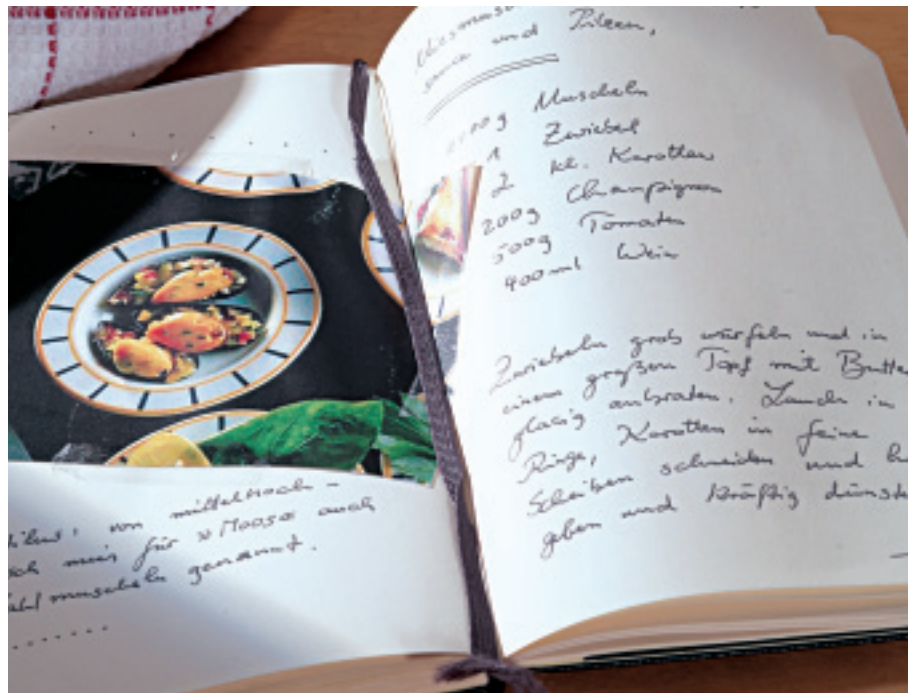 sauce und Pilzen,
Muscheln
1 Zwiebel
2 kl. Karotten
200g Champignon
500g Tomaten
400ml Wein
Zwiebeln grob würfeln und in
einem großen Topf mit Butter
glasig anbraten. Lauch in
Ringe, Karotten in feine
Scheiben schneiden und
geben und kräftig
von mittelhoch-
mus für »Moos« auch
muscheln genannt.